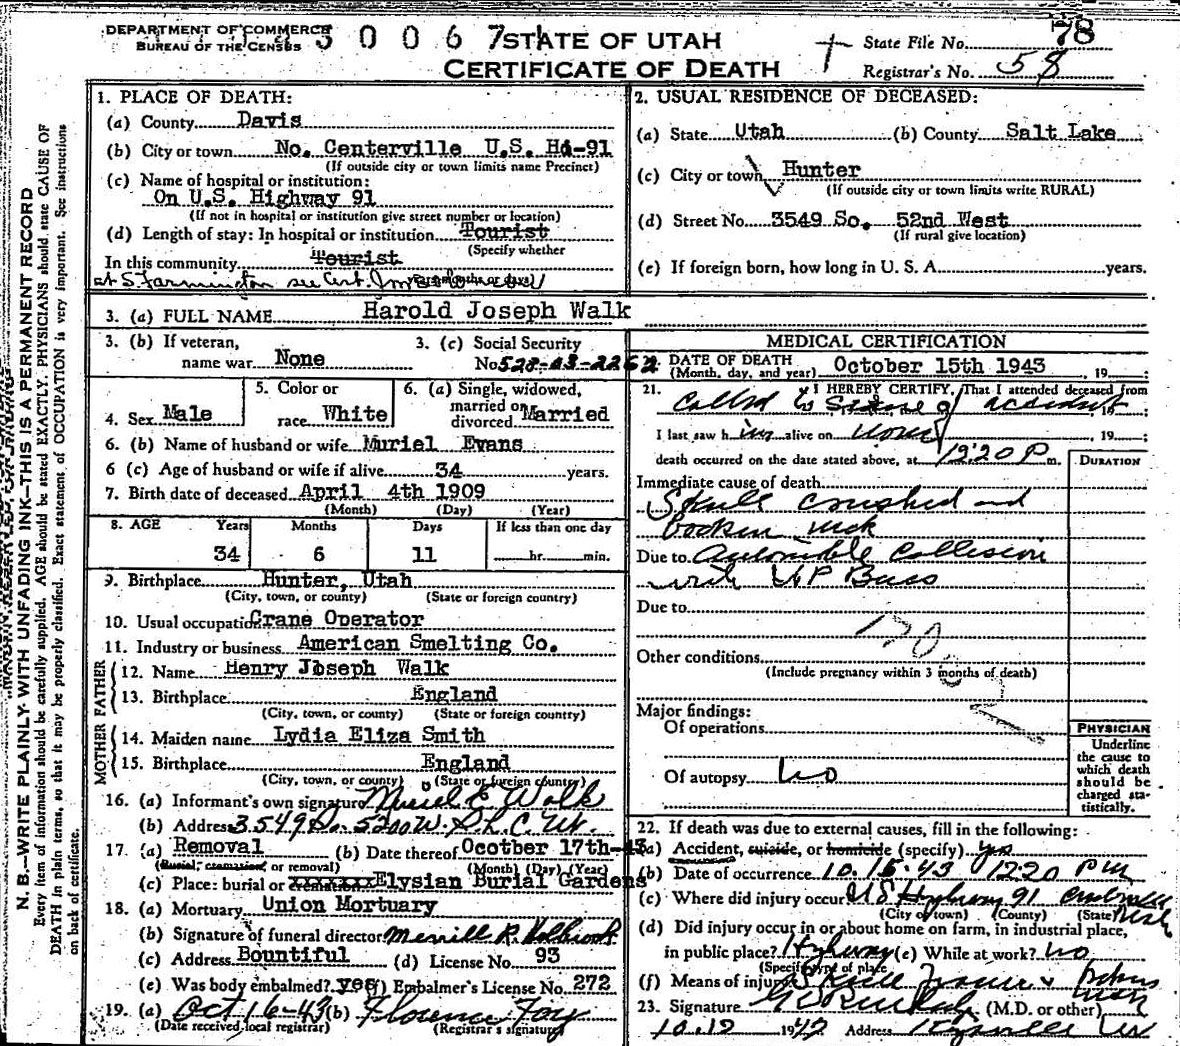 DEPARTMENT OF COMMERCE
BUREAU OF THE CENSUS
3 0 0 6 7
STATE OF UTAH
CERTIFICATE OF DEATH
State File No. 78
Registrar's No. 58
N. B.—WRITE PLAINLY WITH UNFADING INK—THIS IS A PERMANENT RECORD
Every item of information should be carefully supplied. AGE should be stated EXACTLY. PHYSICIANS should state CAUSE OF
DEATH in plain terms, so that it may be properly classified. Exact statement of OCCUPATION is very important. See instructions
on back of certificate.
1. PLACE OF DEATH:
(a) County Davis
(b) City or town No. Centerville U.S. Hi-91
(If outside city or town limits name Precinct)
(c) Name of hospital or institution:
On U.S. Highway 91
(If not in hospital or institution give street number or location)
(d) Length of stay: In hospital or institution Tourist
(Specify whether
In this community Tourist
at S. Farmington see Cert.
2. USUAL RESIDENCE OF DECEASED:
(a) State Utah (b) County Salt Lake
(c) City or town Hunter
(If outside city or town limits write RURAL)
(d) Street No. 3549 So. 52nd West
(If rural give location)
(e) If foreign born, how long in U. S. A. years.
3. (a) FULL NAME Harold Joseph Walk
3. (b) If veteran, name war None
3. (c) Social Security No. 528-03-2262
4. Sex Male
5. Color or race White
6. (a) Single, widowed, married or divorced Married
6. (b) Name of husband or wife Muriel Evans
6 (c) Age of husband or wife if alive 34 years.
7. Birth date of deceased April 4th 1909
(Month) (Day) (Year)
8. AGE Years Months Days If less than one day
34 6 11 hr. min.
9. Birthplace Hunter, Utah
(City, town, or county) (State or foreign country)
10. Usual occupation Crane Operator
11. Industry or business American Smelting Co.
FATHER
12. Name Henry Joseph Walk
13. Birthplace England
(City, town, or county) (State or foreign country)
MOTHER
14. Maiden name Lydia Eliza Smith
15. Birthplace England
(City, town, or county) (State or foreign country)
16. (a) Informant's own signature Muriel E. Walk
(b) Address 3549 So. 5200 W. S.L.C. Ut.
17. (a) Removal (b) Date thereof Ocotber 17th-43
(Burial, cremation, or removal) (Month) (Day) (Year)
(c) Place: burial or Elysian Burial Gardens
18. (a) Mortuary Union Mortuary
(b) Signature of funeral director Merrill R. Holbrook
(c) Address Bountiful (d) License No. 93
(e) Was body embalmed? yes (f) Embalmer's License No. 272
19. (a) Oct 16-43 (b) Florence Foy
(Date received local registrar) (Registrar's signature)
MEDICAL CERTIFICATION
DATE OF DEATH October 15th 1943, 19
(Month, day, and year)
21. I HEREBY CERTIFY, That I attended deceased from
Called to Scene of accident 19
I last saw him alive on , 19 ;
death occurred on the date stated above, at 12:20 P m.
DURATION
Immediate cause of death
Skull crushed and
broken neck
Due to Automobile Collision
with U P Buss
Due to
170
Other conditions
(Include pregnancy within 3 months of death)
Major findings:
Of operations
Of autopsy no
PHYSICIAN
Underline
the cause to
which death
should be
charged sta-
tistically.
22. If death was due to external causes, fill in the following:
(a) Accident, suicide, or homicide (specify) yes
(b) Date of occurrence 10-15-43 1220 PM
(c) Where did injury occur US Hyway 91
(City or town) (County) (State)
(d) Did injury occur in or about home on farm, in industrial place,
in public place? Hyway (e) While at work? no
(Specify type of place)
(f) Means of injury
23. Signature (M.D. or other)
Address Kaysville Ut